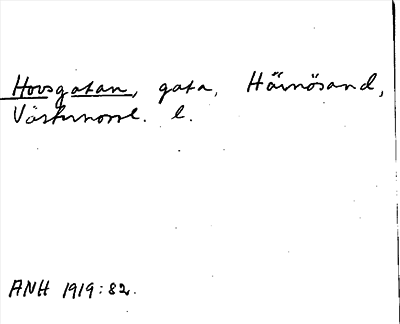 Hovsgatan, gata, Härnösand,
Västernorrl. l.
ANH 1919:82.